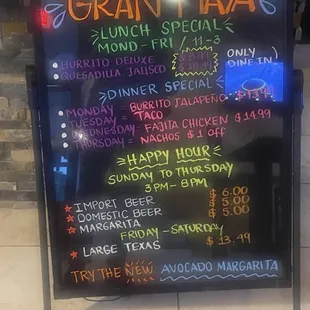 GRAN
LUNCH SPECIAL
MOND-FRI / 11-3
BURRITO DELUXE
QUESADILLA JALISCO
ONLY
DINE IN
DINNER SPECIAL
MONDAY = BURRITO JALAPEÑO
TUESDAY = TACO
WEDNESDAY = FAJITA CHICKEN $14.99
THURSDAY = NACHOS $1 OFF
HAPPY HOUR
SUNDAY TO THURSDAY
3PM-8PM
IMPORT BEER $6.00
DOMESTIC BEER $5.00
MARGARITA $5.00
FRIDAY - SATURDAY
LARGE TEXAS $13.49
TRY THE NEW AVOCADO MARGARITA